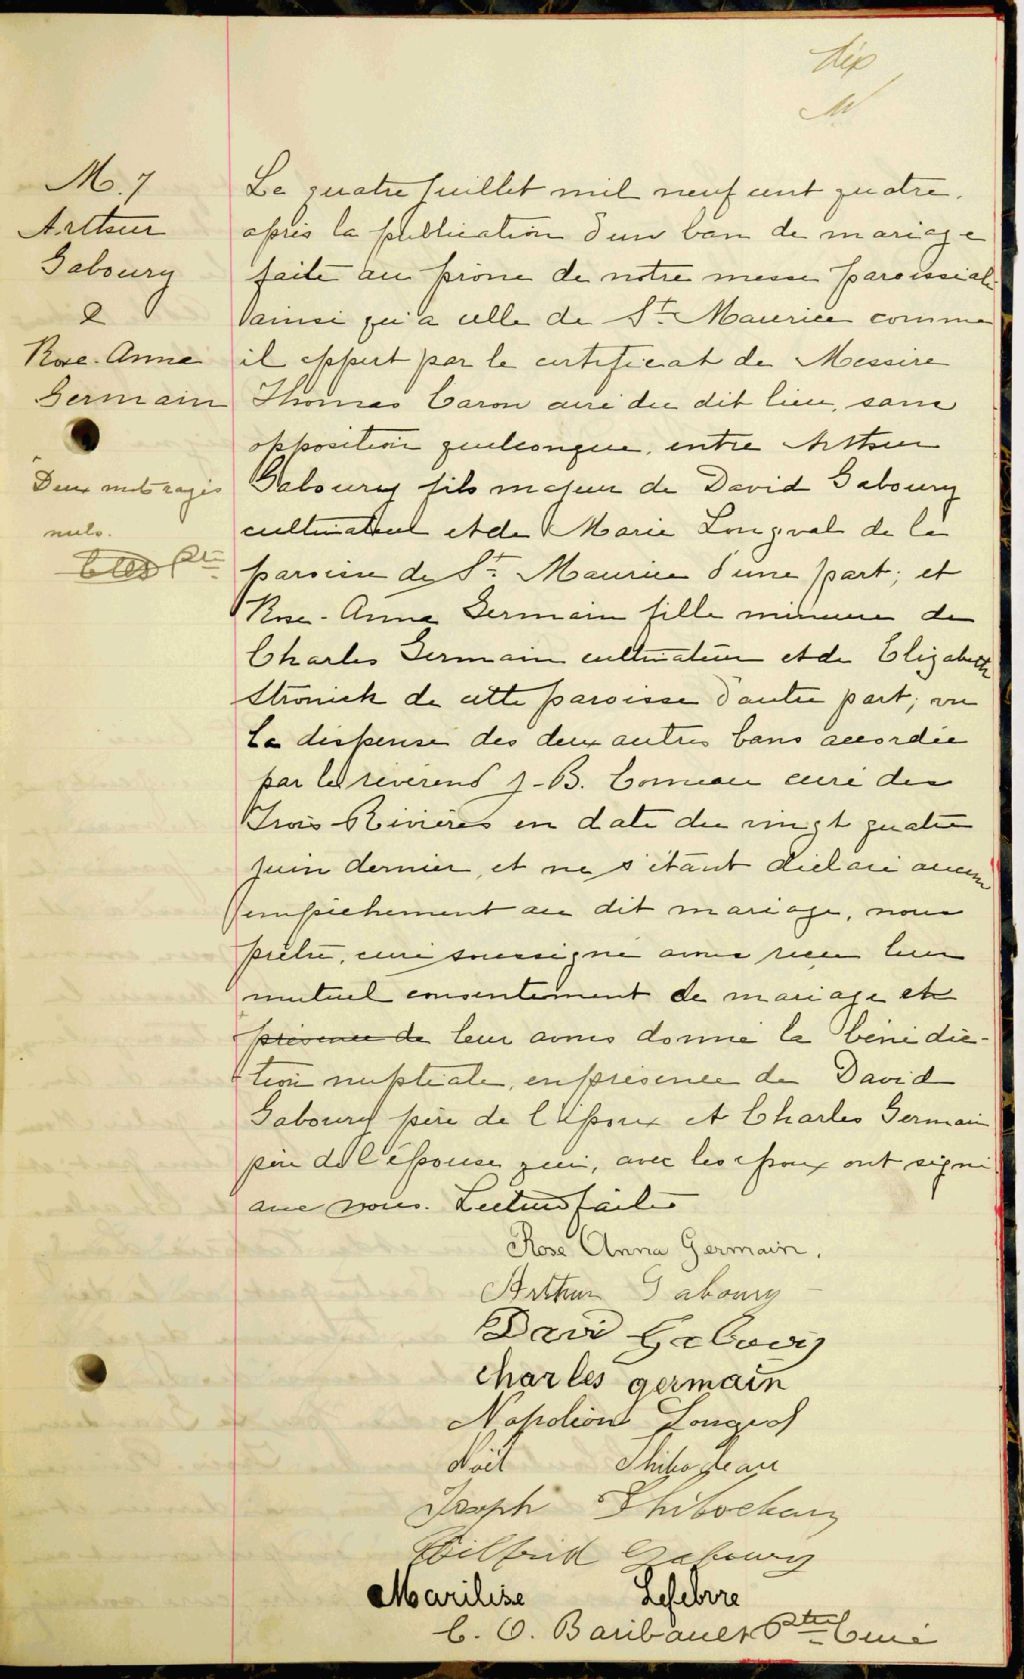 dix
M. 7
Arthur
Gaboury
&
Rose-Anna
Germain
Deux mots rayés
nuls.
Ptre
Le quatre Juillet mil neuf cent quatre,
après la publication d'un ban de mariage
faite au prône de notre messe paroissiale
ainsi qu'à celle de St. Maurice comme
il appert par le certificat de Messire
Thomas Caron curé du dit lieu, sans
opposition quelconque, entre Arthur
Gaboury fils majeur de David Gaboury
cultivateur et de Marie Longval de la
paroisse de St. Maurice d'une part; et
Rose-Anna Germain fille mineure de
Charles Germain cultivateur et de Elizabeth
Stronick de cette paroisse d'autre part; vu
la dispense des deux autres bans accordée
par le révérend J-B. Comeau curé des
Trois-Rivières en date du vingt quatre
juin dernier, et ne s'étant déclaré aucun
empêchement au dit mariage, nous
prêtre, curé soussigné avons reçu leur
mutuel consentement de mariage et
présence de leur avons donné la bénédic-
tion nuptiale, en présence de David
Gaboury père de l'époux et Charles Germain
père de l'épouse qui, avec les époux ont signé
avec nous. Lecture faite
Rose Anna Germain.
Arthur Gaboury
David Gaboury
charles germain
Napoléon Longval
Noël Thibodeau
Joseph Thibodeau
Wilfrid Gaboury
Marilise Lefebvre
C. O. Baribault Ptre Curé